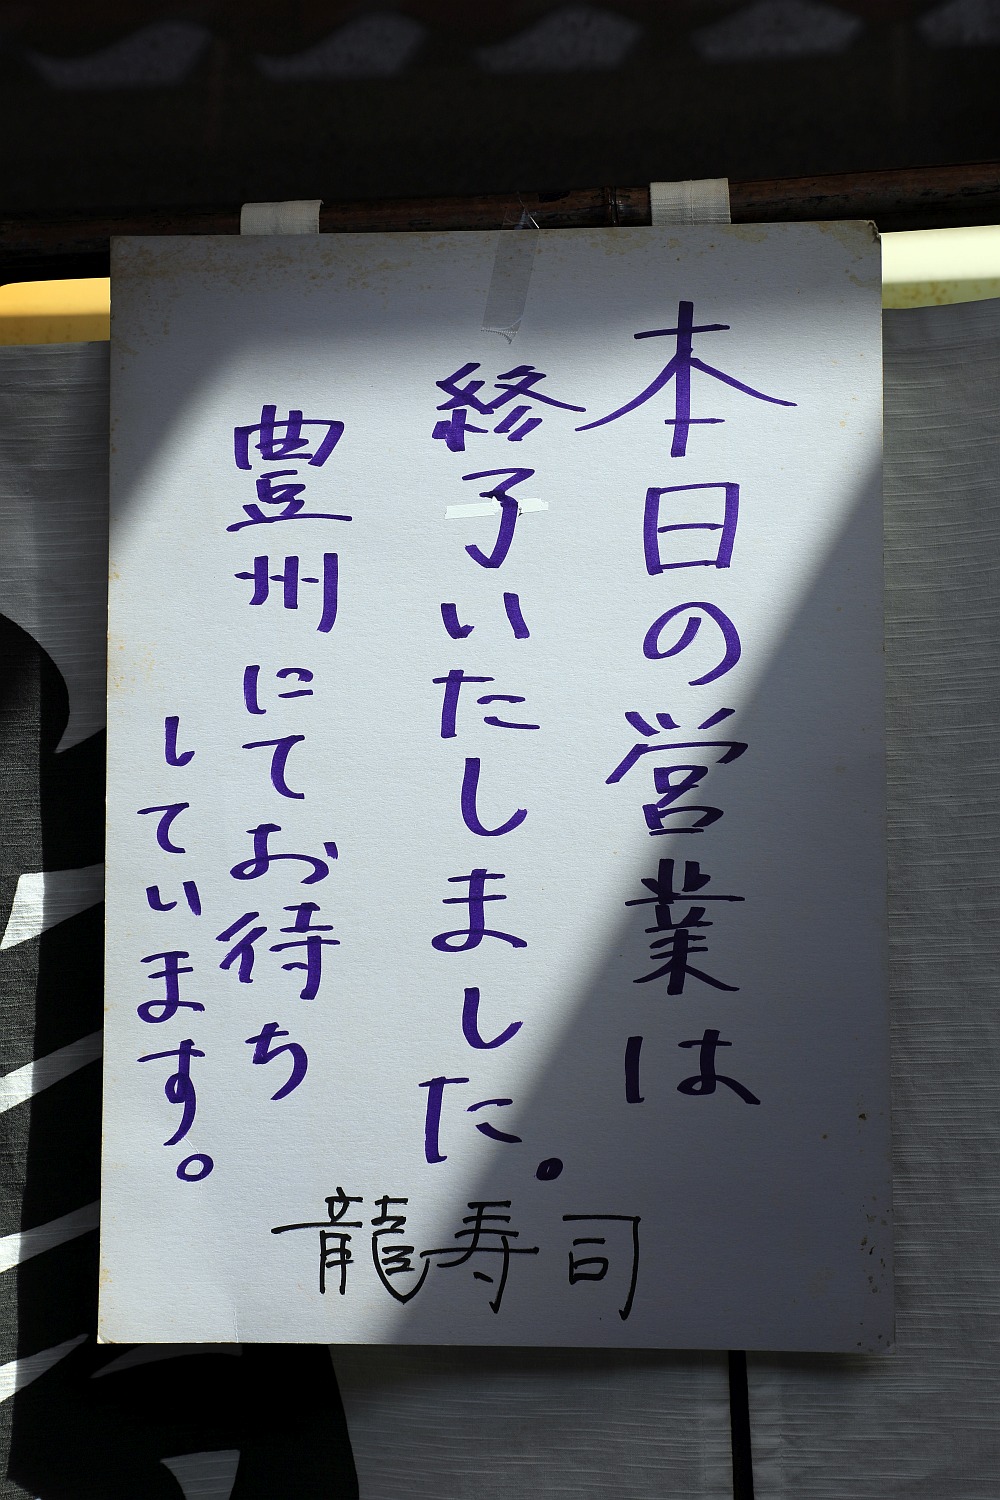 本日の営業は
終了いたしました。
豊州にてお待ち
しています。
龍寿司